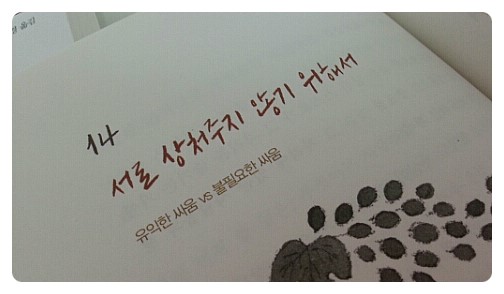 14
서로 상처주지 않기 위해서
유익한 싸움 vs 불필요한 싸움